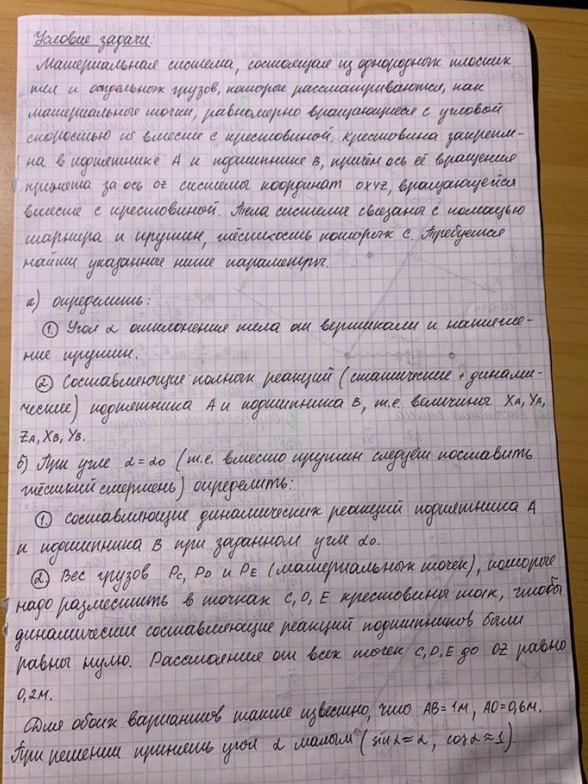 Условие задачи:
Материальная система, состоящая из однородных плоских
тел и отдельных грузов, которые рассматриваются, как
материальные точки, равномерно вращающиеся с угловой
скоростью ω вместе с крестовиной. Крестовина закрепле-
на в подпятнике А и подшипнике В, причём ось её вращения
принята за ось oz системы координат oxyz, вращающейся
вместе с крестовиной. Тела системы связаны с помощью
шарнира и пружин, жёсткость которых с. Требуется
найти указанные ниже параметры.
а) определить:
① Угол α отклонения тела от вертикали и натяже-
ние пружин.
② Составляющие полных реакций (статические + динами-
ческие) подпятника А и подшипника В, т.е. величины XA, YA,
ZA, XB, YB.
б) При угле α=α0 (т.е. вместо пружин следует поставить
жёсткий стержень) определить:
①. составляющие динамических реакций подпятника А
и подшипника В при заданном угле α0.
② Вес грузов PC, PD и PE (материальных точек), которые
надо разместить в точках C, D, E крестовины так, чтобы
динамические составляющие реакций подшипников были
равны нулю. Расстояния от всех точек C, D, E до OZ равно
0,2м.
Для обоих вариантов также известно, что AB=1м, AO=0,6м.
При решении принять угол α малым (sinα≈α, cosα≈1).